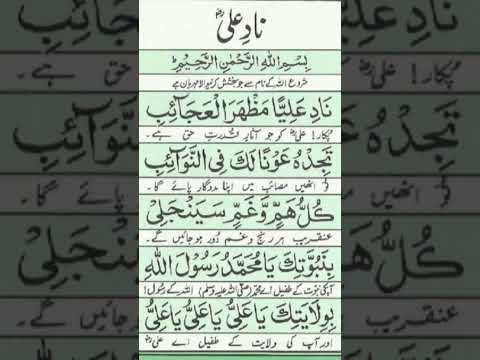 نادِ علیؓ
بِسْمِ اللهِ الرَّحْمٰنِ الرَّحِيْمِ ط
شروع اللہ کے نام سے جو بخشش کرنیوالا مہربان ہے
نَادِ عَلِيًّا مَظْهَرَ الْعَجَآئِبِ
پکار! علیؓ کو جو آثارِ قدرتِ حق ہے۔
تَجِدْهُ عَوْنًا لَكَ فِی النَّوَآئِبِ
تو انھیں مصائب میں اپنا مددگار پائے گا۔
كُلُّ هَمٍّ وَّغَمٍّ سَيَنْجَلِیْ
عنقریب ہر رنج و غم دور ہو جائیں گے۔
بِنُبُوَّتِكَ يَا مُحَمَّدُ رَسُوْلَ اللهِ
آپکی نبوت کے طفیل اے محمد (صلی اللہ علیہ وسلم) اللہ کے رسول!
بِوِلَايَتِكَ يَا عَلِیُّ يَا عَلِیُّ يَا عَلِیُّ
اور آپ کی ولایت کے طفیل اے علیؓ